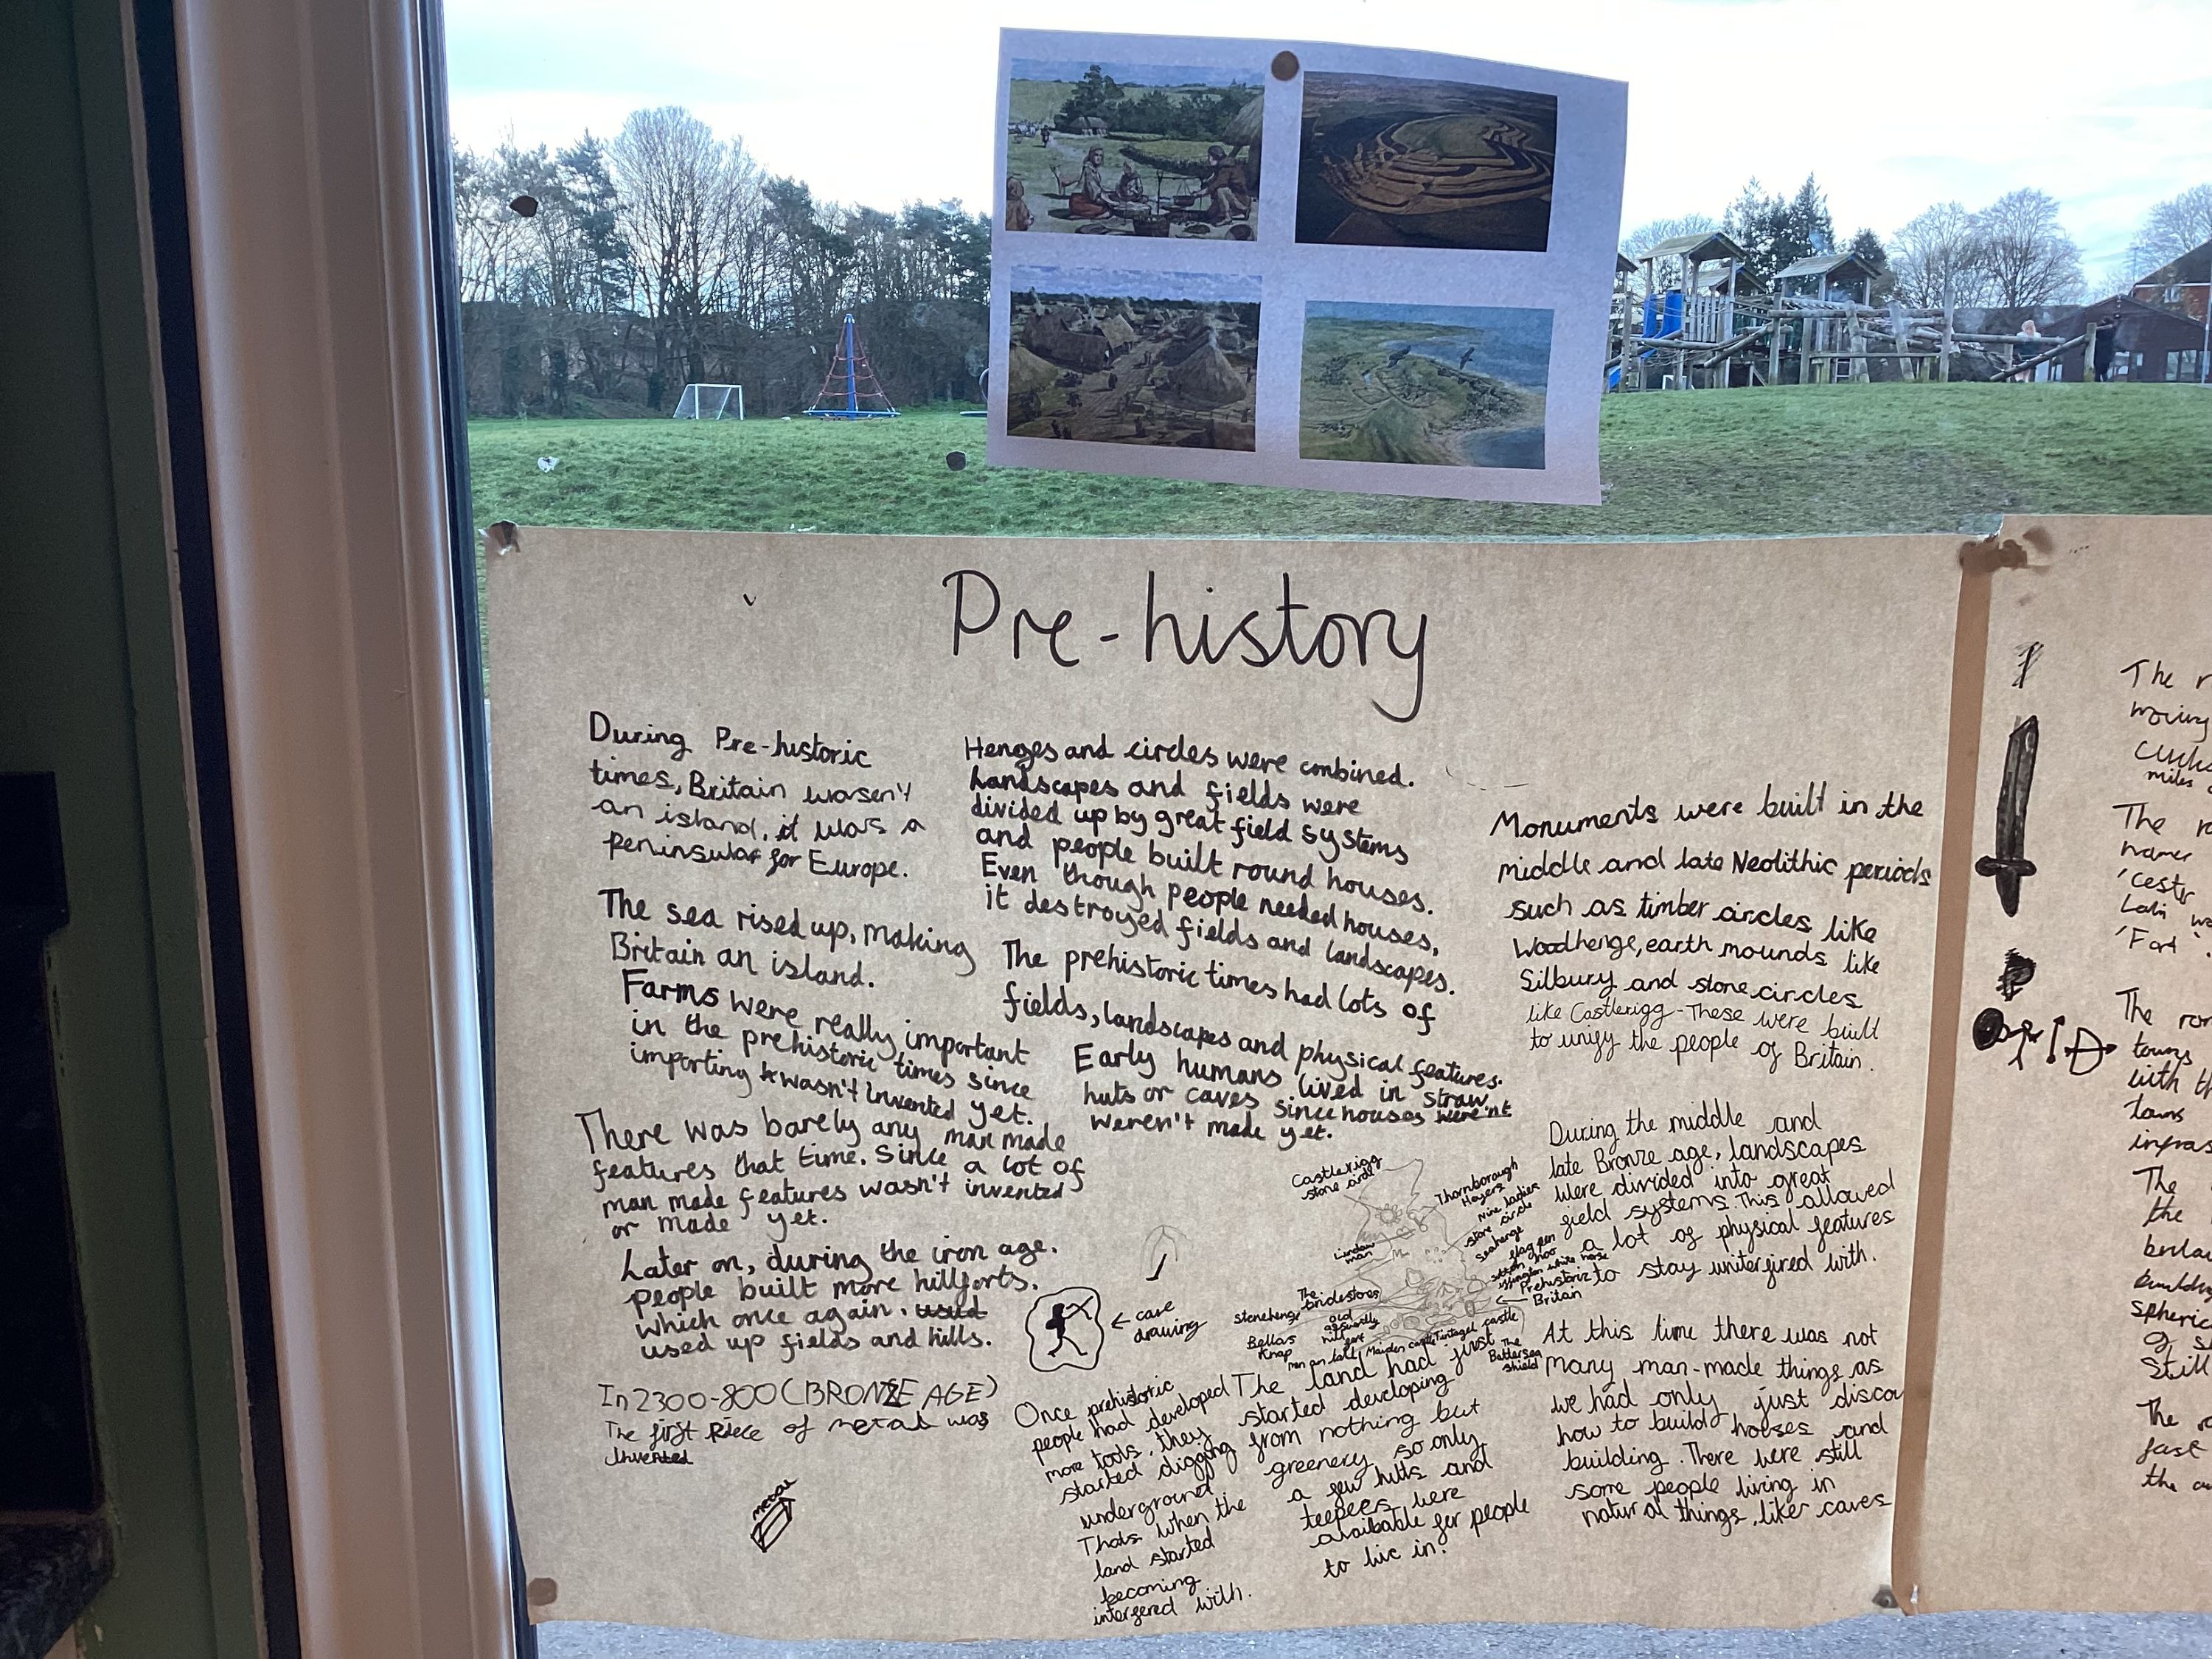 Pre-history
During Pre-historic
times, Britain wasen't
an island, it was a
peninsular for Europe.
The sea rised up, making
Britain an island.
Farms were really important
in the prehistoric times since
importing wasn't invented yet.
There was barely any man made
features that time. Since a lot of
man made features wasn't invented
or made yet.
Later on, during the iron age.
people built more hillforts.
which once again, used
used up fields and hills.
In 2300-800 (BRONZE AGE)
The first Piece of metal was
Invented
METAL
Henges and circles were combined.
Landscapes and fields were
divided up by great field systems
and people built round houses.
Even though people needed houses,
it destroyed fields and landscapes.
The prehistoric times had lots of
fields, landscapes and physical features.
Early humans lived in straw
huts or caves since houses were'nt
weren't made yet.
← cave
drawing
Castlerigg
stone
Thornborough
Nine ladies
stone circle
Seahenge
Lindow
man
Prehistoric
Britain
The
bridestones
Stonehenge
old
hillfort
Bellas
Knap
Maiden castle
Tintagel castle
The
Battersea
Shield
Once prehistoric
people had developed
more tools, they
started digging
underground
Thats when the
land started
becoming
intergered with.
The land had just
started developing
from nothing but
greenery so only
a few huts and
teepees were
available for people
to live in.
Monuments were built in the
middle and late Neolithic periods
such as timber circles like
Woodhenge, earth mounds like
Silbury and stone circles
like Castlerigg - These were built
to unify the people of Britain.
During the middle and
late Bronze age, landscapes
were divided into great
field systems. This allowed
a lot of physical features
to stay unitergired with.
At this time there was not
many man-made things as
we had only just disco
how to build houses and
building. There were still
some people living in
natural things, like caves
The r
moving
miles
The r
names
'cestr
Latin wo
'Fort'.
The ro
towns
with th
towns
infras
The
the
buildin
spheric
of s
Still
The ro
fast
the